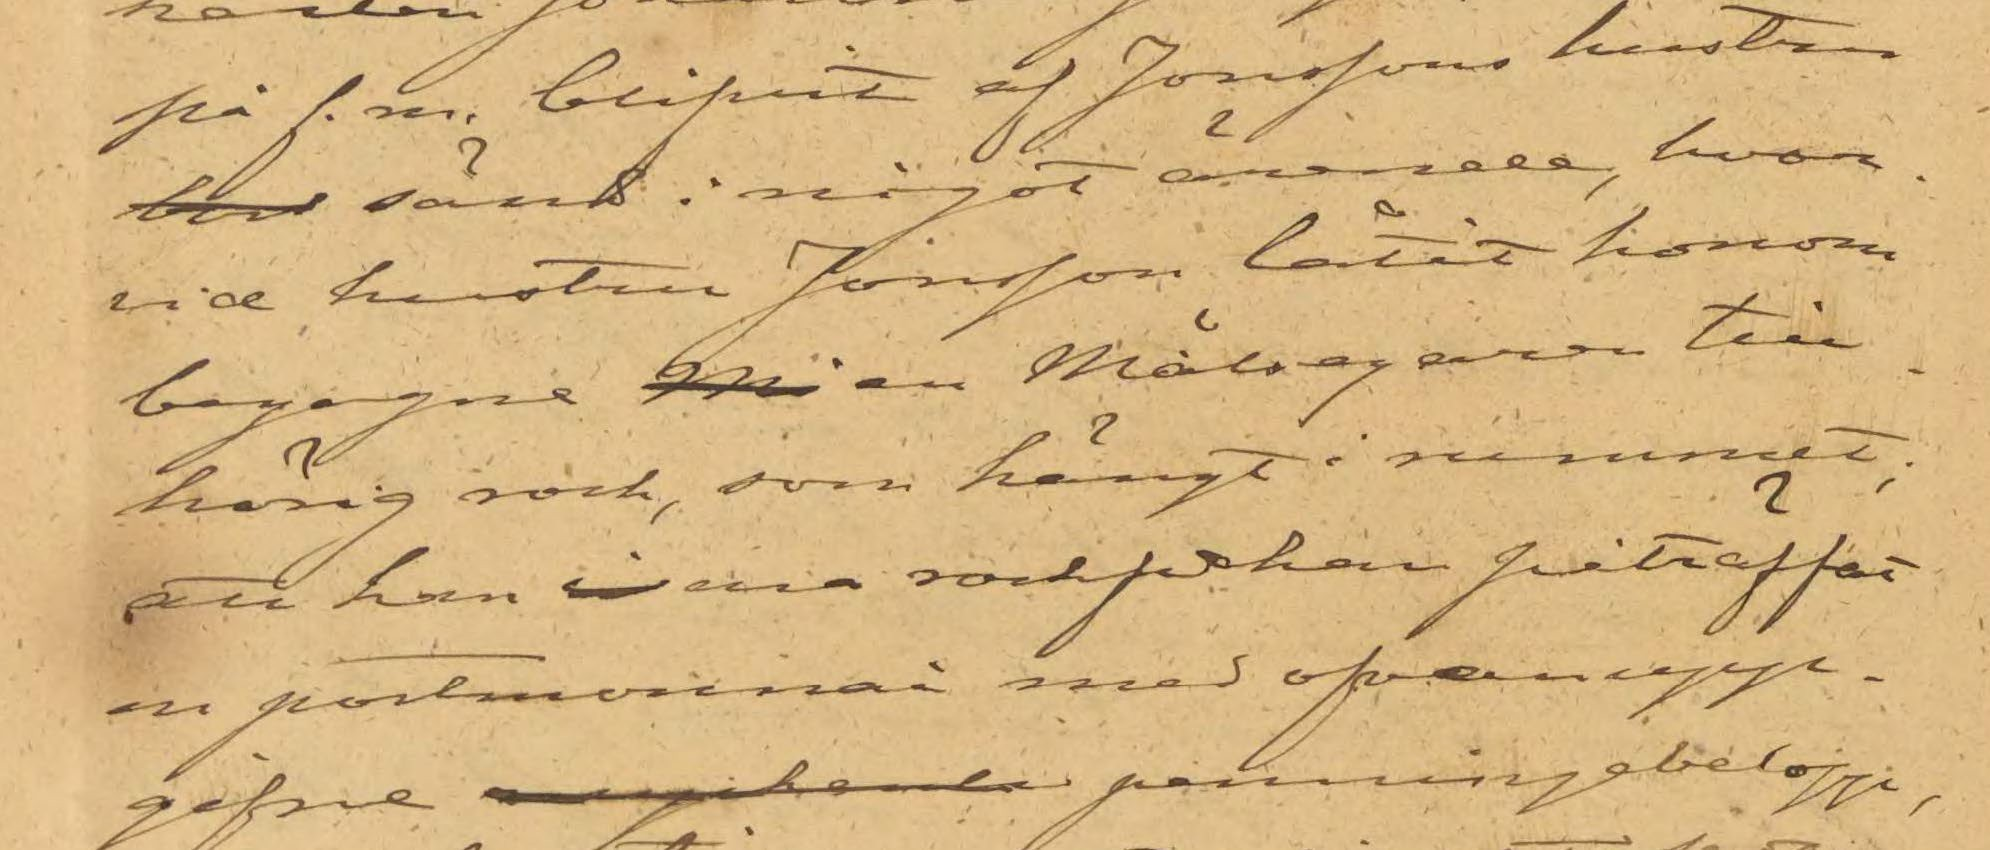 på f. m. blifvit af Jonssons hustru
sänd i något ärende, hvar-
vid hustru Jonsson låtit honom
begagna en Målsegaren till-
hörig rock, som hängt i rummet;
att han i ena rockfickan påträffat
en portmonnai med ofvan upp-
gifne penningebelopp,